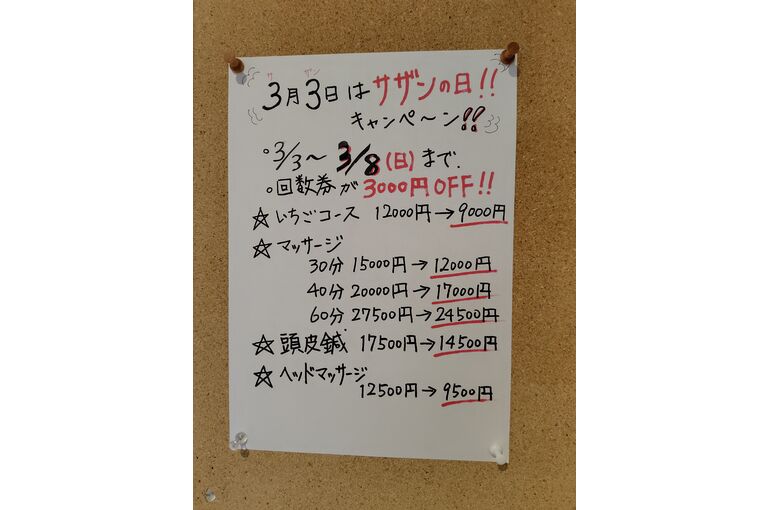 サ ザン
3月3日はサザンの日!!
キャンペ〜ン!!
○3/3〜3/8(日)まで.
○回数券が3000円OFF!!
☆いちごコース 12000円→9000円
☆マッサージ
30分 15000円→12000円
40分 20000円→17000円
60分 27500円→24500円
☆頭皮鍼 17500円→14500円
☆ヘッドマッサージ
12500円→9500円